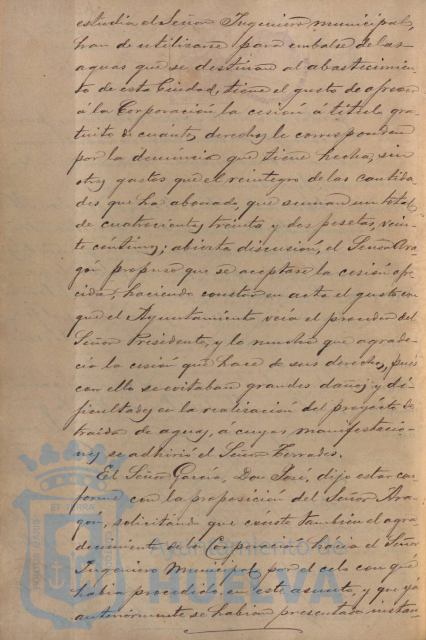 estudia el Señor Ingeniero municipal,
han de utilizarse para embalse de las
aguas que se destinan al abastecimien
to de esta Ciudad, tiene el gusto de ofrecer
á la Corporación la cesión á título gra-
tuito de cuantos derechos le correspondan
por la denuncia que tiene hecha, sin
otros gastos que el reintegro de las cantida
des que ha abonado, que suman un total
de cuatrocientas treinta y dos pesetas, vein
te céntimos; abierta discusión, el Señor Ara
gón propuso que se aceptase la cesión ofre
cida, haciendo constar en acta el gusto con
que el Ayuntamiento veía el proceder del
Señor Presidente, y lo mucho que agrade-
cía la cesión que hace de sus derechos, pues
con ello se evitaban grandes daños y di
ficultades en la realización del proyecto de
traida de aguas, á cuyas manifestacio-
nes se adhirió el Señor Terrades.
El Señor García, Don José, dijo estar con
forme con la proposición del Señor Ara
gón, solicitando que conste también el agra
decimiento de la Corporación hacia el Señor
Ingeniero Municipal por el celo con que
había procedido en este asunto, y que ya
anteriormente se habían presentado instan
Ayuntamiento de
HUELVA